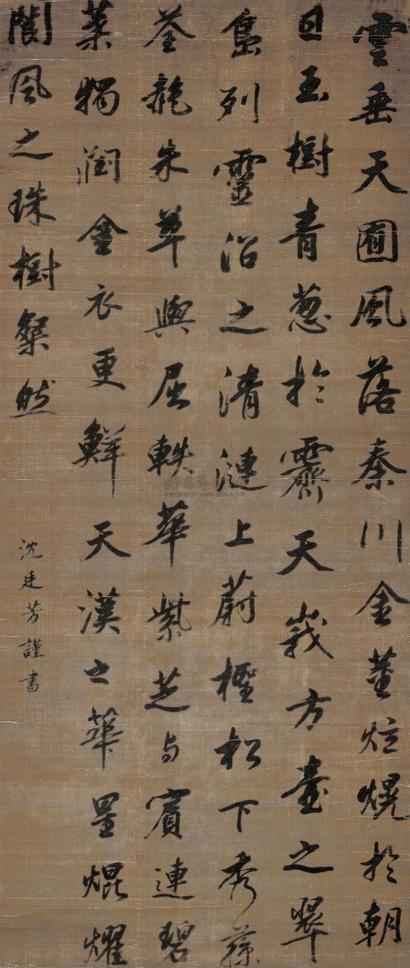 雲垂天圃風落秦川金茎炫熀於朝
日玉樹青葱於霽天峩方壺之翠
島列靈沼之清漣上蔚檉松下秀蓀
荃龍朱草與屈軼華紫芝与賓連碧
葉獨潤金衣更鮮天漢之華星焜耀
閬風之珠樹粲然
沈廷芳謹書